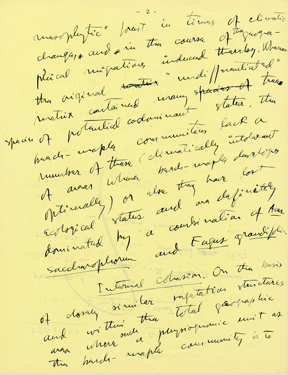 - 2 -
mesophytic" forest in times of climatic
changes and in the course of topogra-
phical migrations induced thereby. Whereas
the original "undifferentiated"
matrix contained many species of trees
species of potential codominant status, the
hard-maple communities lack a
number of these (climatically intolerant
of areas where hard-maple develops
optimally) or else they have lost
ecological status and are definitely
dominated by a combination of Acer
saccharophorum and Fagus grandifolia.
Internal cohesion. On the basis
of closely similar vegetation structures
and within the total geographic
area where such a physiognomic unit as
the hard-maple community is to